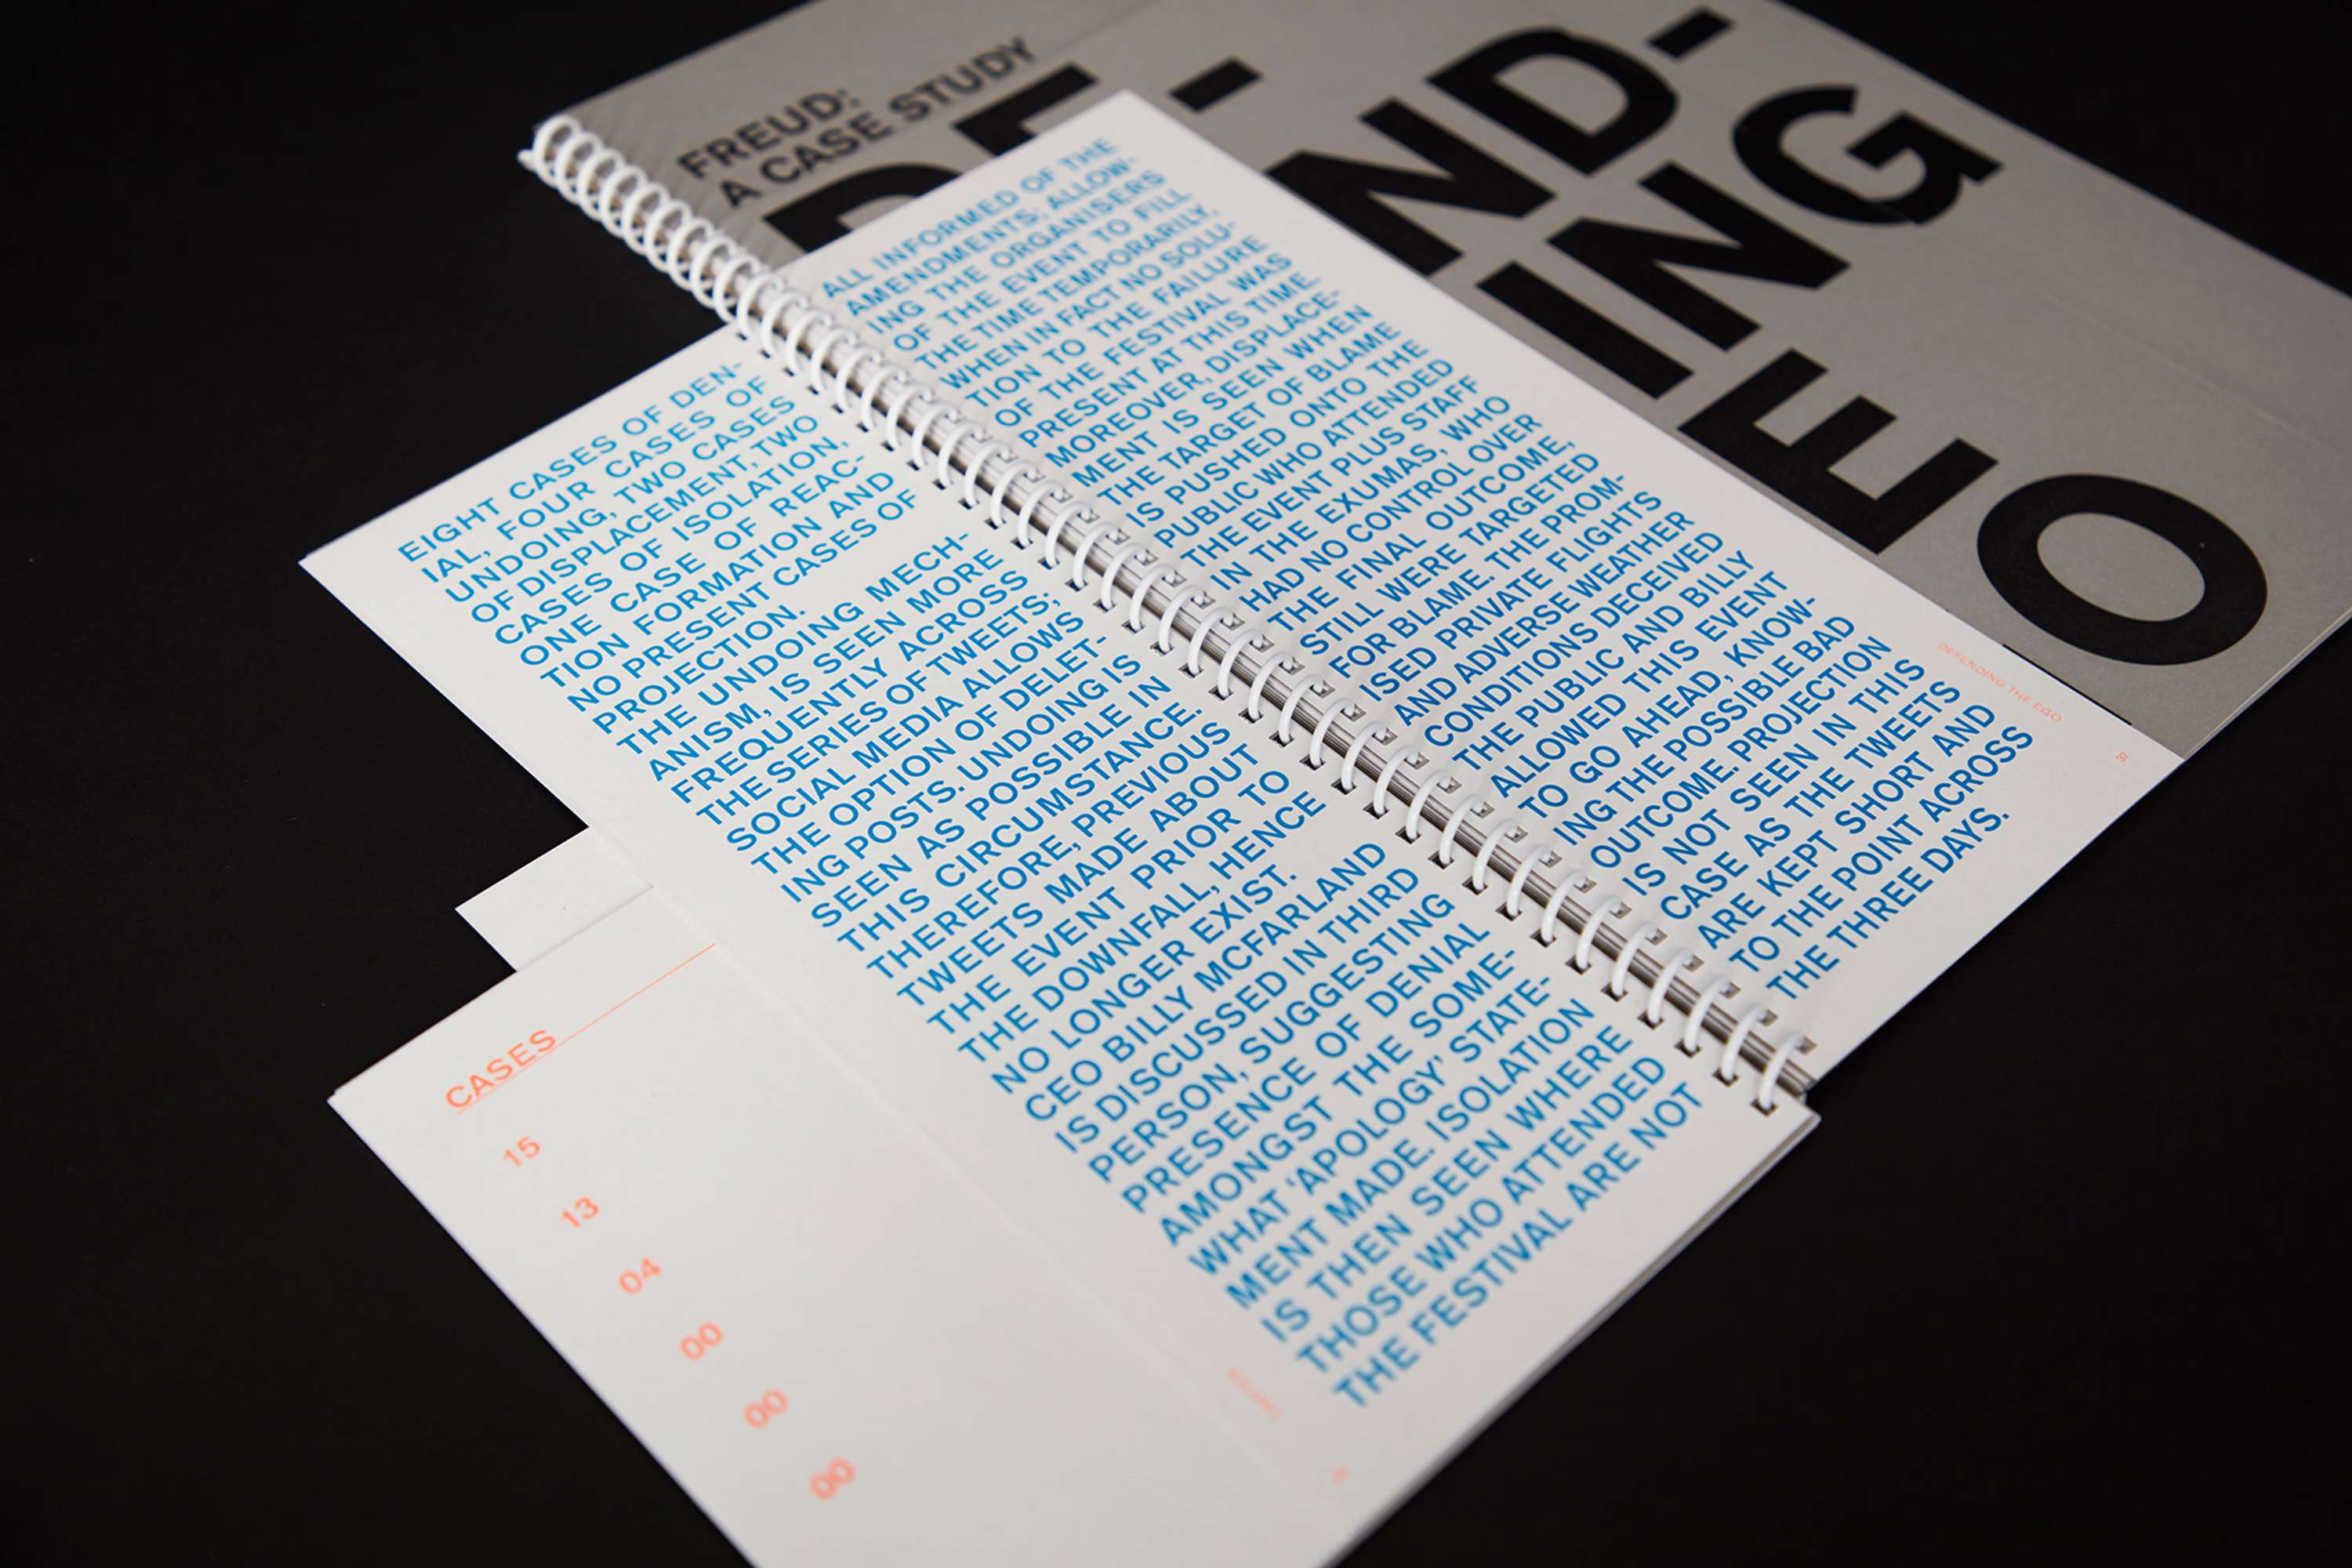 FREUD:
A CASE STUDY
DE-
ND-
ING
EO
EIGHT CASES OF DEN-
IAL, FOUR CASES OF
UNDOING, TWO CASES
OF DISPLACEMENT, TWO
CASES OF ISOLATION,
ONE CASE OF REAC-
TION FORMATION AND
NO PRESENT CASES OF
PROJECTION.
THE UNDOING MECH-
ANISM, IS SEEN MORE
FREQUENTLY ACROSS
THE SERIES OF TWEETS;
SOCIAL MEDIA ALLOWS
THE OPTION OF DELET-
ING POSTS. UNDOING IS
SEEN AS POSSIBLE IN
THIS CIRCUMSTANCE.
THEREFORE, PREVIOUS
TWEETS MADE ABOUT
THE EVENT PRIOR TO
THE DOWNFALL, HENCE
NO LONGER EXIST.
CEO BILLY MCFARLAND
IS DISCUSSED IN THIRD
PERSON, SUGGESTING
PRESENCE OF DENIAL
AMONGST THE SOME-
WHAT ‘APOLOGY’ STATE-
MENT MADE. ISOLATION
IS THEN SEEN WHERE
THOSE WHO ATTENDED
THE FESTIVAL ARE NOT
ALL INFORMED OF THE
AMENDMENTS; ALLOW-
ING THE ORGANISERS
OF THE EVENT TO FILL
THE TIME TEMPORARILY,
WHEN IN FACT NO SOLU-
TION TO THE FAILURE
OF THE FESTIVAL WAS
PRESENT AT THIS TIME.
MOREOVER, DISPLACE-
MENT IS SEEN WHEN
THE TARGET OF BLAME
IS PUSHED ONTO THE
PUBLIC WHO ATTENDED
THE EVENT PLUS STAFF
IN THE EXUMAS, WHO
HAD NO CONTROL OVER
THE FINAL OUTCOME,
STILL WERE TARGETED
FOR BLAME. THE PROM-
ISED PRIVATE FLIGHTS
AND ADVERSE WEATHER
CONDITIONS DECEIVED
THE PUBLIC AND BILLY
ALLOWED THIS EVENT
TO GO AHEAD, KNOW-
ING THE POSSIBLE BAD
OUTCOME. PROJECTION
IS NOT SEEN IN THIS
CASE AS THE TWEETS
ARE KEPT SHORT AND
TO THE POINT ACROSS
THE THREE DAYS.
DEFENDING THE EGO
CASES
15
13
04
00
00
00